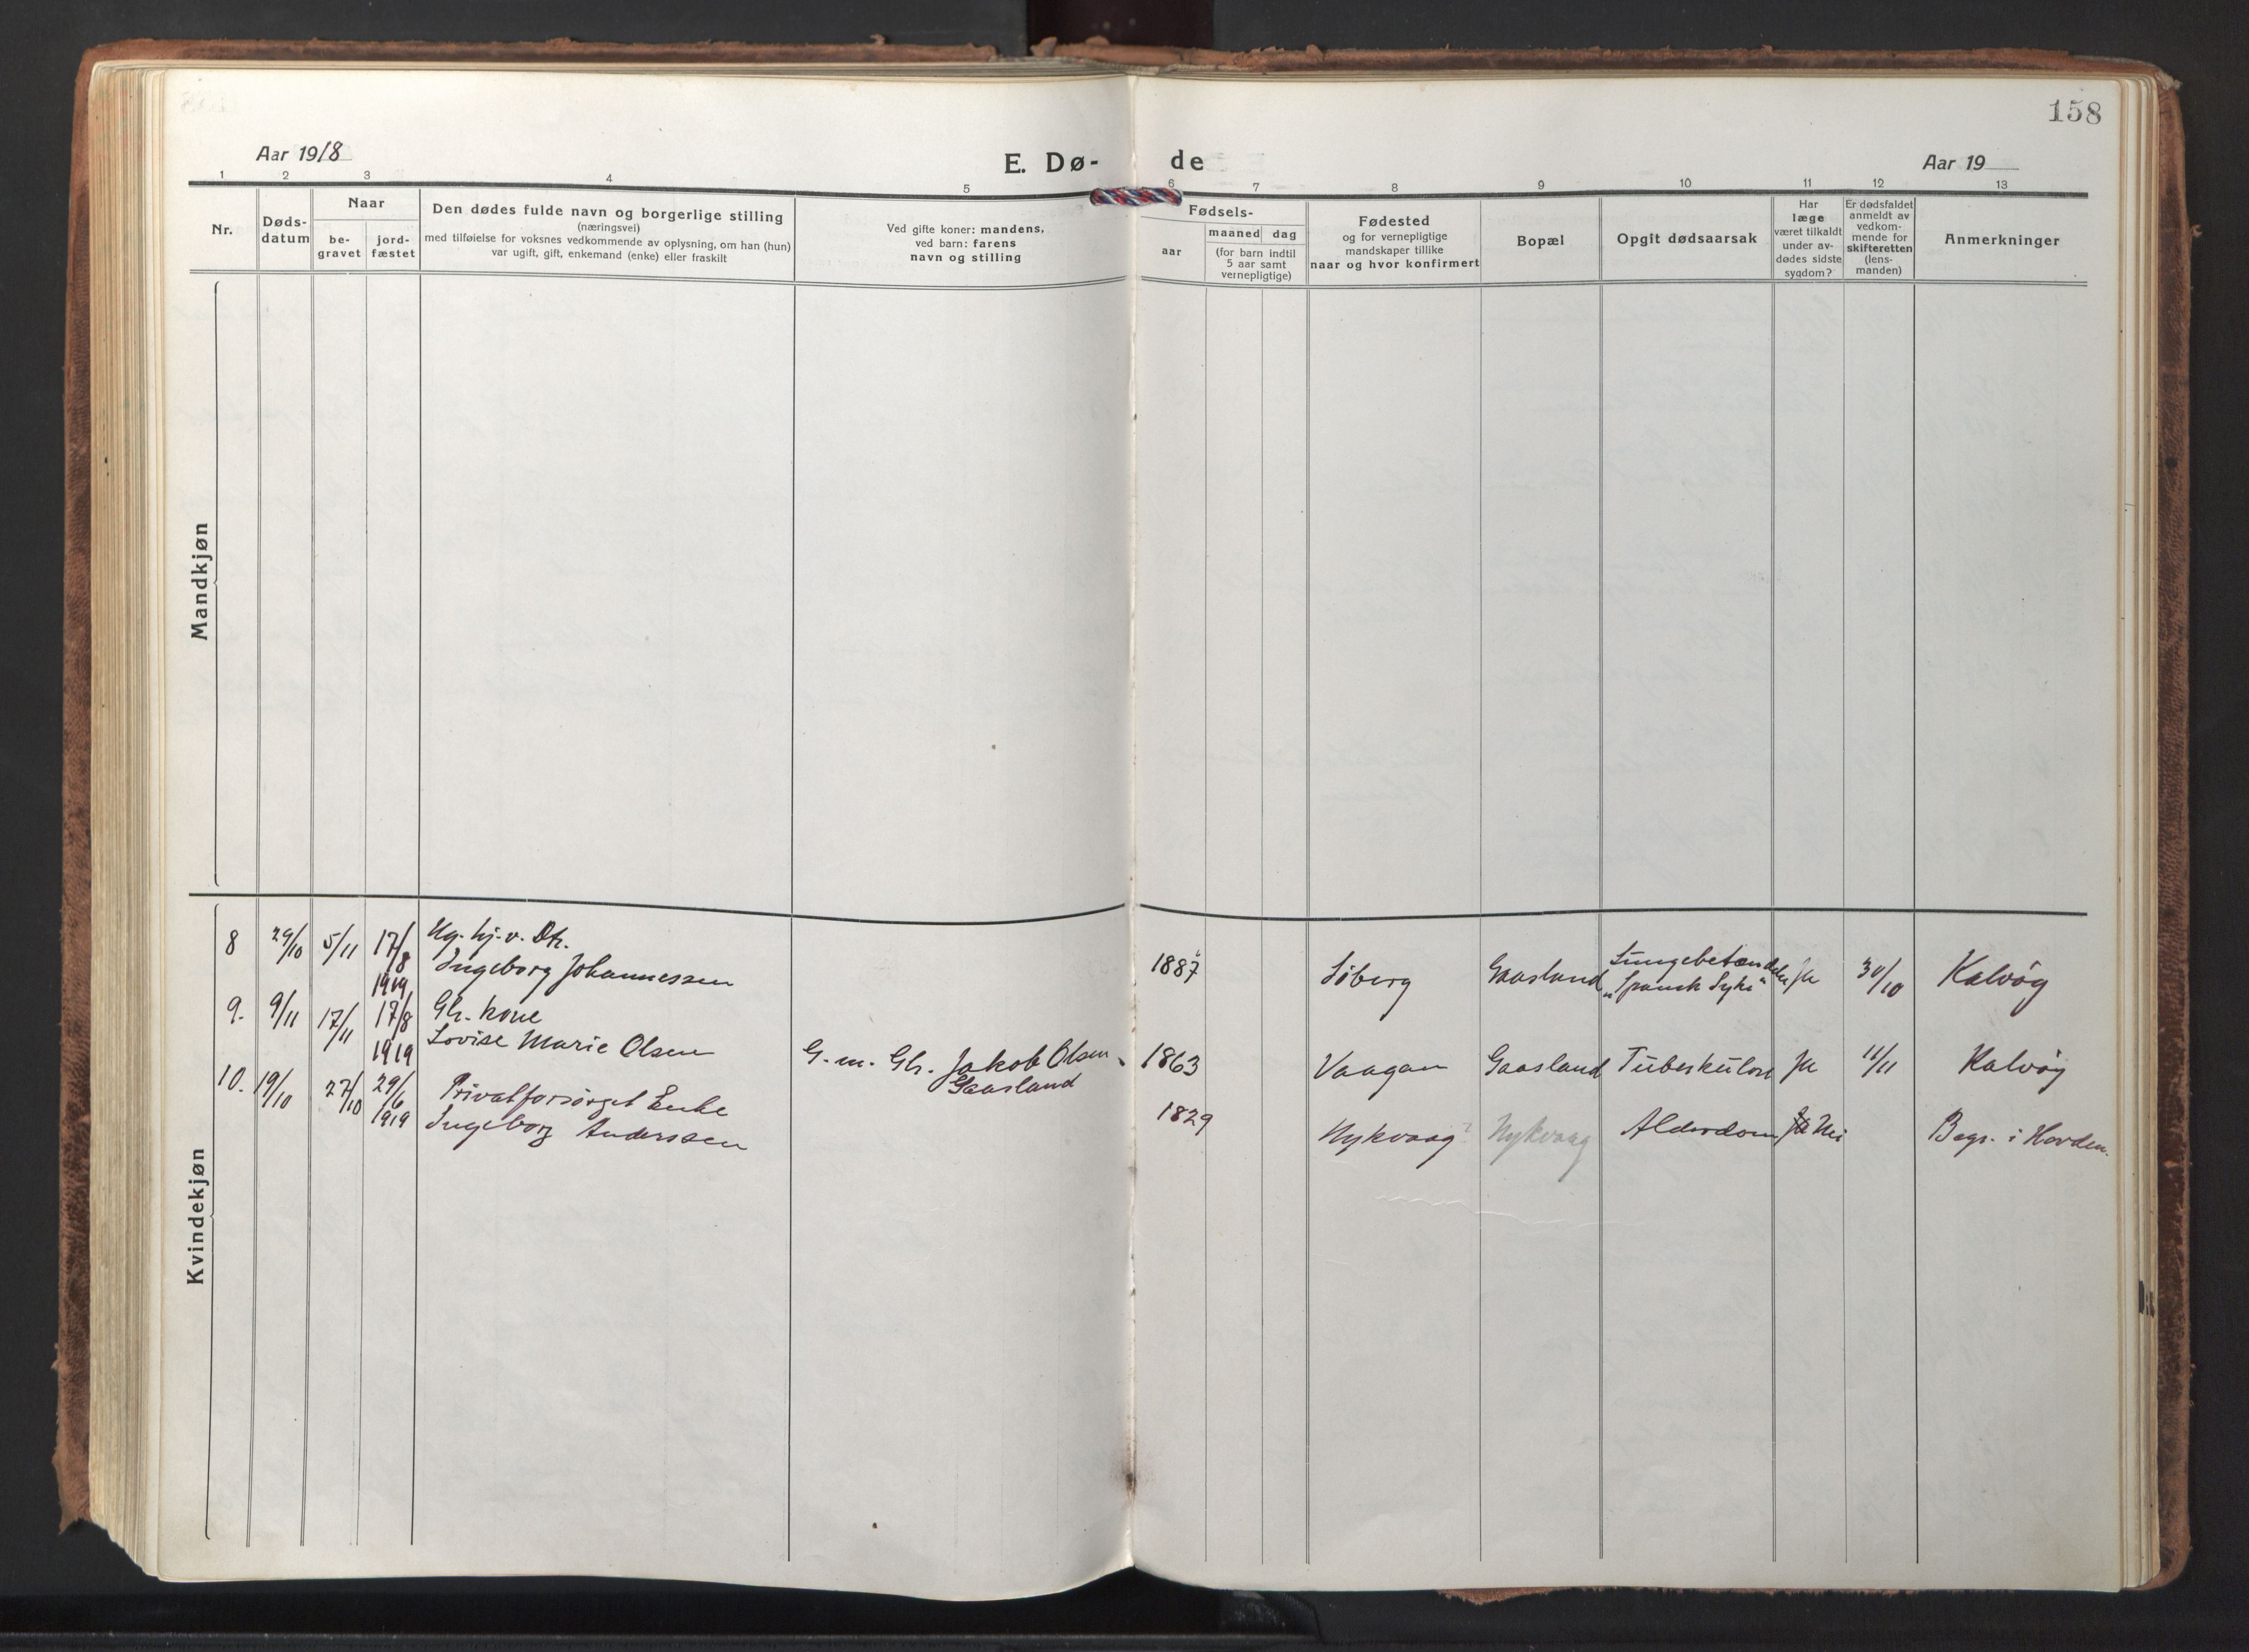 158
Aar 1918
E. Dø-
de
Aar 19
1 2 3 4 5 6 7 8 9 10 11 12 13
Nr.
Døds-
datum
Naar
be-
gravet
jord-
fæstet
Den dødes fulde navn og borgerlige stilling
(næringsvei)
med tilføielse for voksnes vedkommende av oplysning, om han (hun)
var ugift, gift, enkemand (enke) eller fraskilt
Ved gifte koner: mandens,
ved barn: farens
navn og stilling
Fødsels-
aar
maaned dag
(for barn indtil
5 aar samt
vernepligtige)
Fødested
og for vernepligtige
mandskaper tillike
naar og hvor konfirmert
Bopæl
Opgit dødsaarsak
Har
læge
været tilkaldt
under av-
dødes sidste
sygdom?
Er dødsfaldet
anmeldt av
vedkom-
mende for
skifteretten
(lens-
manden)
Anmerkninger
Mandkjøn
Kvindekjøn
8 29/10 5/11 17/8 Ug. hj. v. Dtr.
1919 Ingeborg Johannessen 1887 Söberg Gaasland Lungebetændelse Ja 30/10 Kalvöy
"Spansk Syke"
9. 9/11 17/11 17/8 Gb. kone
1919 Lovise Marie Olsen G. m. Gb. Jakob Olsen, 1863 Vaagan Gaasland Tuberkulose Ja 11/11 Kalvöy
Gaasland
10. 19/10 27/10 29/6 Privatforsörget Enke
1919 Ingeborg Anderssen 1829 Nykvaag? Nykvaag Alderdom Ja Nei Begr. i Hovden.